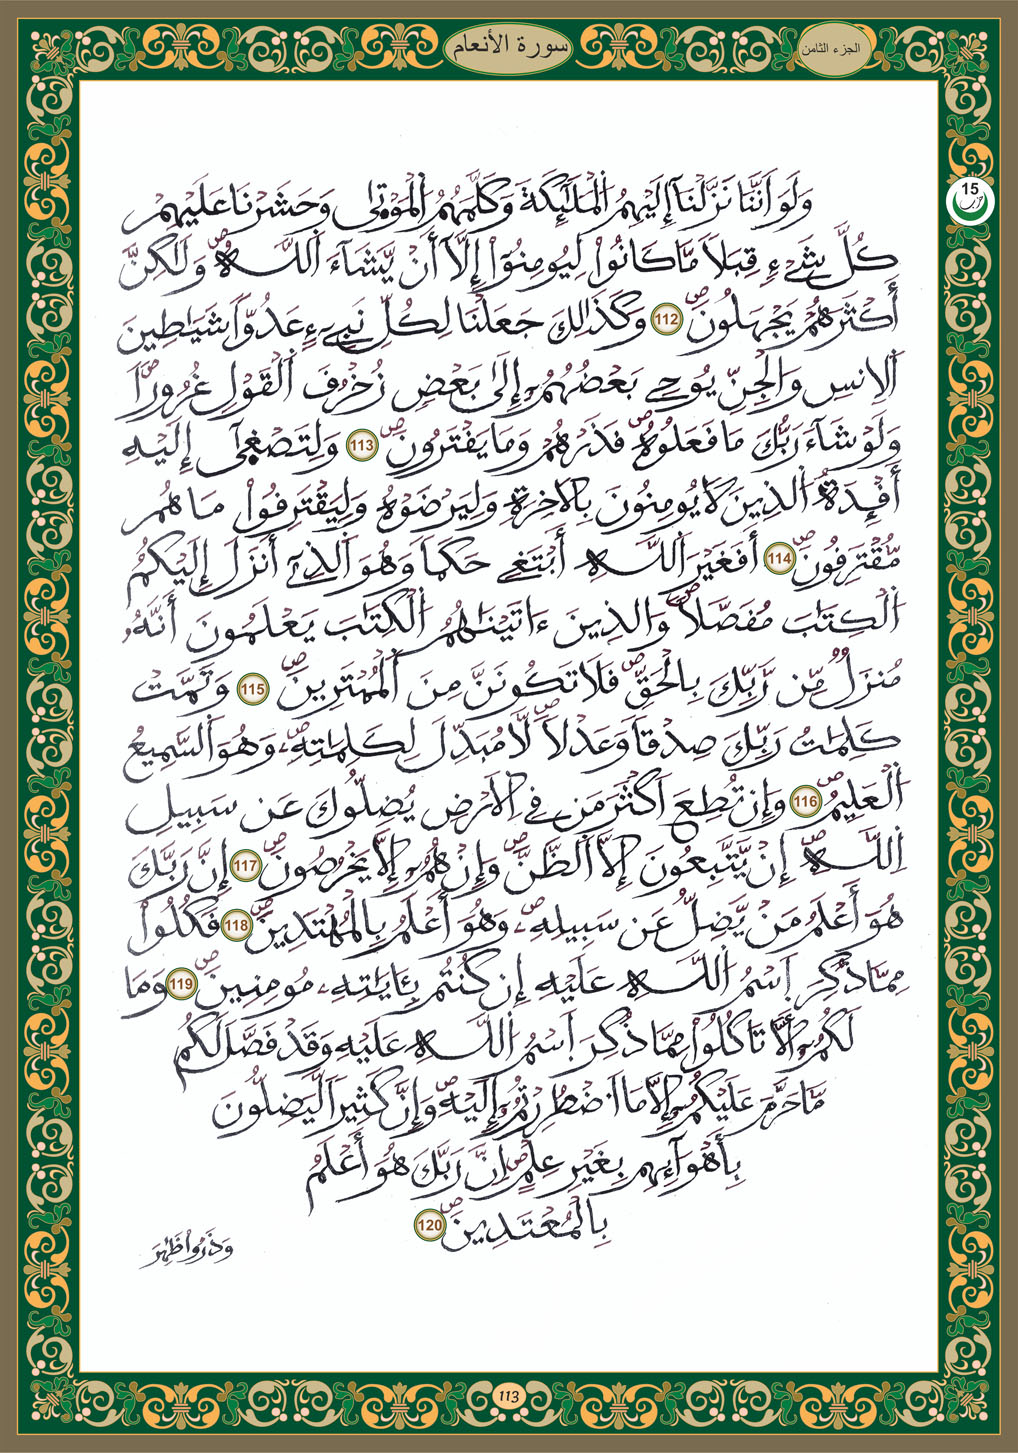 سورة الأنعام
الجزء الثامن
15
حزب
وَلَوَ اَنَّنَا نَزَّلْنَآ إِلَيْهِمُ اُلْمَلَٰٓئِكَةَ وَكَلَّمَهُمُ اُلْمَوْت۪يٰ وَحَشَرْنَا عَلَيْهِمْ
كُلَّ شَےْءٖ قِبَلاٗ مَّا كَانُواْ لِيُومِنُوٓاْ إِلَّآ أَنْ يَّشَآءَ اَللَّهُۖ وَلَٰكِنَّ
أَكْثَرَهُمْ يَجْهَلُونَۖ 112 وَكَذَٰلِكَ جَعَلْنَا لِكُلِّ نَبِےٓءٍ عَدُوّاٗ شَيَٰطِينَ
اَلِانسِ وَالْجِنِّ يُوحِے بَعْضُهُمُۥٓ إِلَىٰ بَعْضٖ زُخْرُفَ اَلْقَوْلِ غُرُوراٗۖ
وَلَوْ شَآءَ رَبُّكَ مَا فَعَلُوهُۖ فَذَرْهُمْ وَمَا يَفْتَرُونَۖ 113 وَلِتَصْغ۪يٰٓ إِلَيْهِ
أَفْـِٕدَةُ اُلذِينَ لَا يُومِنُونَ بِالَاخِرَةِ وَلِيَرْضَوْهُ وَلِيَقْتَرِفُواْ مَا هُم
مُّقْتَرِفُونَۖ 114 أَفَغَيْرَ اَللَّهِ أَبْتَغِے حَكَماٗ وَهُوَ اَلذِےٓ أَنزَلَ إِلَيْكُمُ
اُلْكِتَٰبَ مُفَصَّلاٗۖ وَالذِينَ ءَاتَيْنَٰهُمُ اُلْكِتَٰبَ يَعْلَمُونَ أَنَّهُۥ
مُنزَلٞ مِّن رَّبِّكَ بِالْحَقِّۖ فَلَا تَكُونَنَّ مِنَ اَلْمُمْتَرِينَۖ 115 وَتَمَّتْ
كَلِمَٰتُ رَبِّكَ صِدْقاٗ وَعَدْلاٗۖ لَّا مُبَدِّلَ لِكَلِمَٰتِهِۦۖ وَهُوَ اَلسَّمِيعُ
اُلْعَلِيمُۖ 116 وَإِن تُطِعَ اَكْثَرَ مَن فِے اِلَارْضِ يُضِلُّوكَ عَن سَبِيلِ
اِللَّهِۖ إِنْ يَّتَّبِعُونَ إِلَّا اَلظَّنَّۖ وَإِنْ هُمُۥٓ إِلَّا يَخْرُصُونَۖ 117 إِنَّ رَبَّكَ
هُوَ أَعْلَمُ مَنْ يَّضِلُّ عَن سَبِيلِهِۦۖ وَهُوَ أَعْلَمُ بِالْمُهْتَدِينَۖ 118 فَكُلُواْ
مِمَّا ذُكِرَ اَسْمُ اُللَّهِ عَلَيْهِ إِن كُنتُم بِـَٔايَٰتِهِۦ مُومِنِينَۖ 119 وَمَا
لَكُمُۥٓ أَلَّا تَاكُلُواْ مِمَّا ذُكِرَ اَسْمُ اُللَّهِ عَلَيْهِ وَقَدْ فَصَّلَ لَكُم
مَّا حَرَّمَ عَلَيْكُمُۥٓ إِلَّا مَا اَضْطُرِرْتُمُۥٓ إِلَيْهِۖ وَإِنَّ كَثِيراٗ لَّيَضِلُّونَ
بِأَهْوَآئِهِم بِغَيْرِ عِلْمٍۖ اِنَّ رَبَّكَ هُوَ أَعْلَمُ
بِالْمُعْتَدِينَۖ 120
وَذَرُواْ ظَٰهِرَ
113